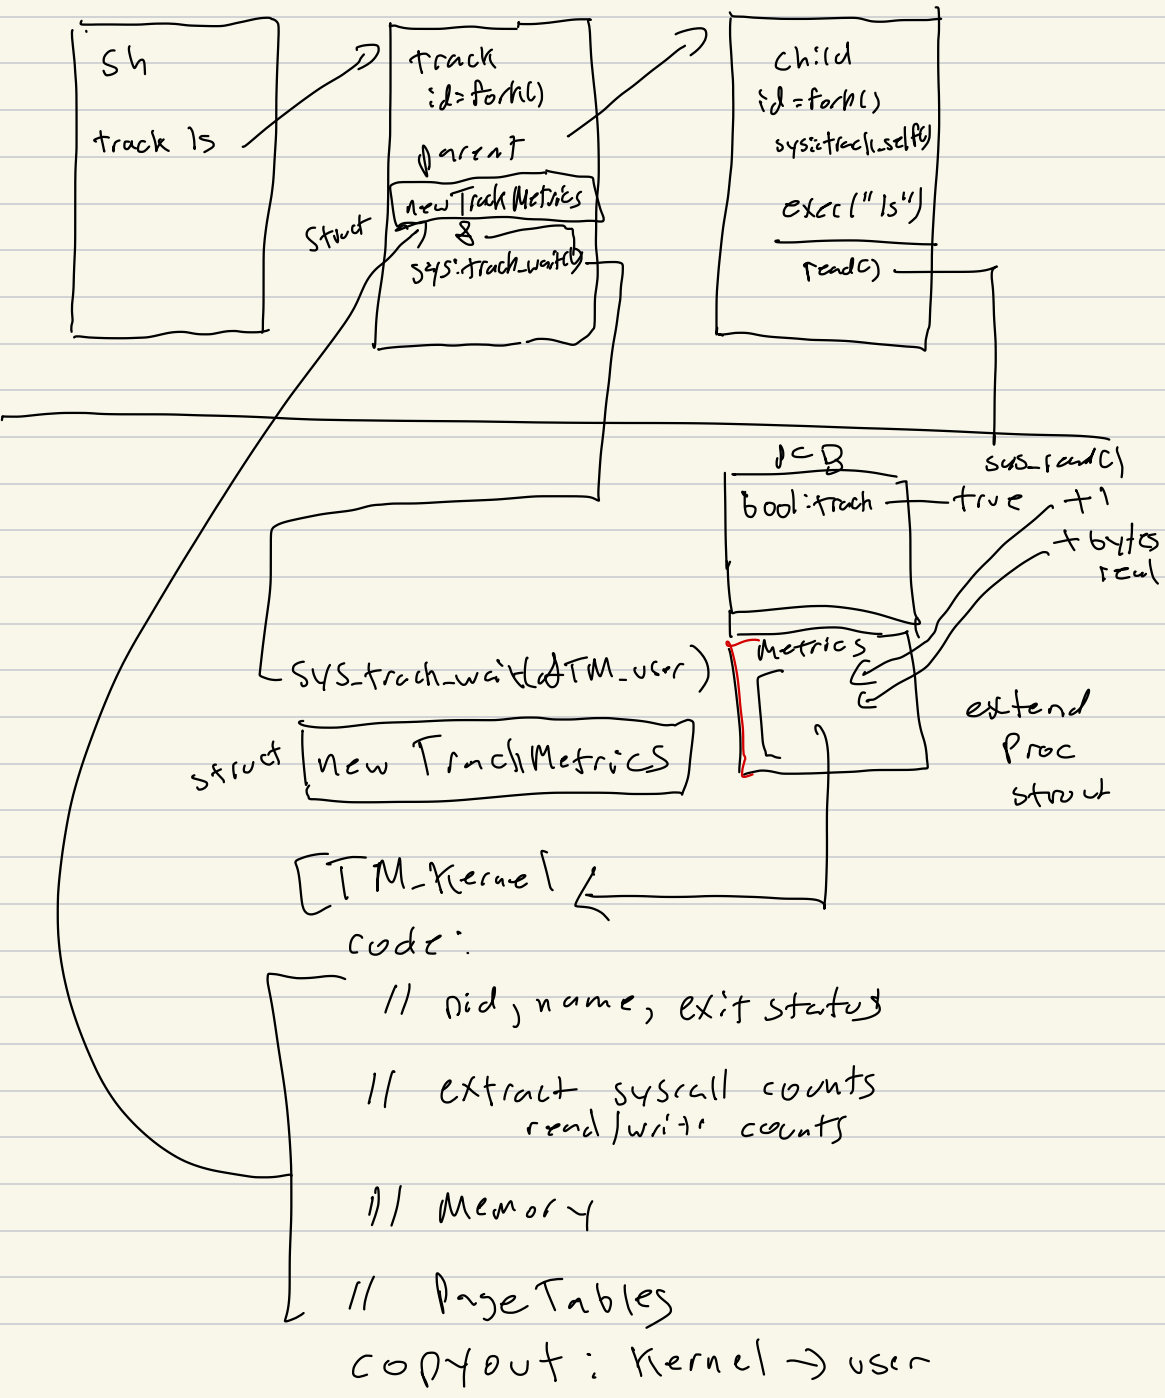 sh
track ls
track
id=fork()
parent
new TrackMetrics
struct
&
sys:track_wait()
child
id=fork()
sys:track_self()
exec("ls")
read()
sys_read()
PCB
bool:track
true
+1
+bytes
read
Metrics
extend
Proc
struct
sys_track_wait(&TM_user)
struct
new TrackMetrics
TM_Kernel
code:
// pid, name, exit status
// extract syscall counts
read/write counts
// Memory
// PageTables
copyout: Kernel → user